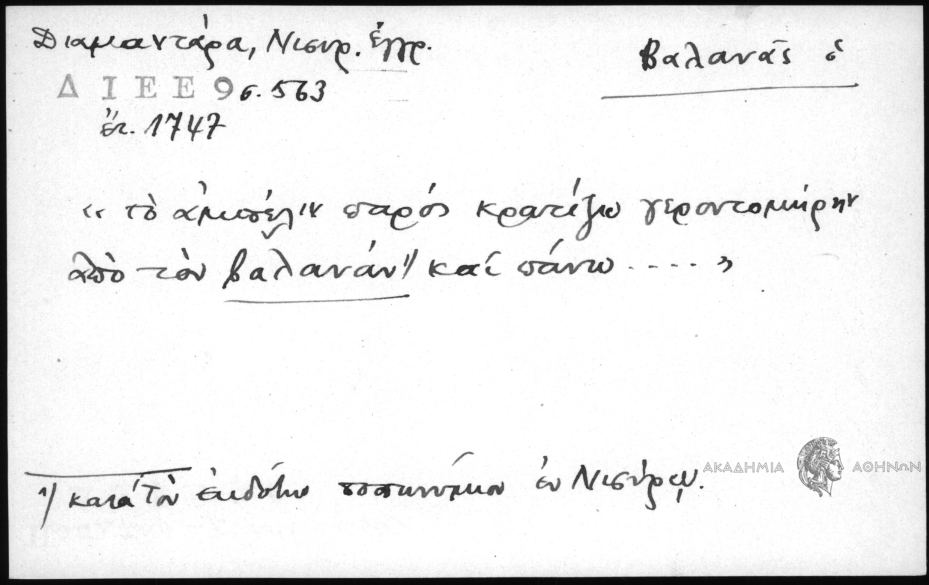 Διαμαντάρα, Νισυρ. ἔγγρ.
Βαλανᾶς ὁ
Δ Ι Ε Ε 9 σ. 563
ἔτ. 1747
« τὸ ἀμπέλιν παρὸς κρατίζω γεροντομοίρην
ἀπὸ τὸν βαλανάν 1) καί πάνω .... »
1) κατά τὸν ἐκδότην τοπωνύμιον ἐν Νισύρῳ.
ΑΚΑΔΗΜΙΑ ΑΘΗΝΩΝ